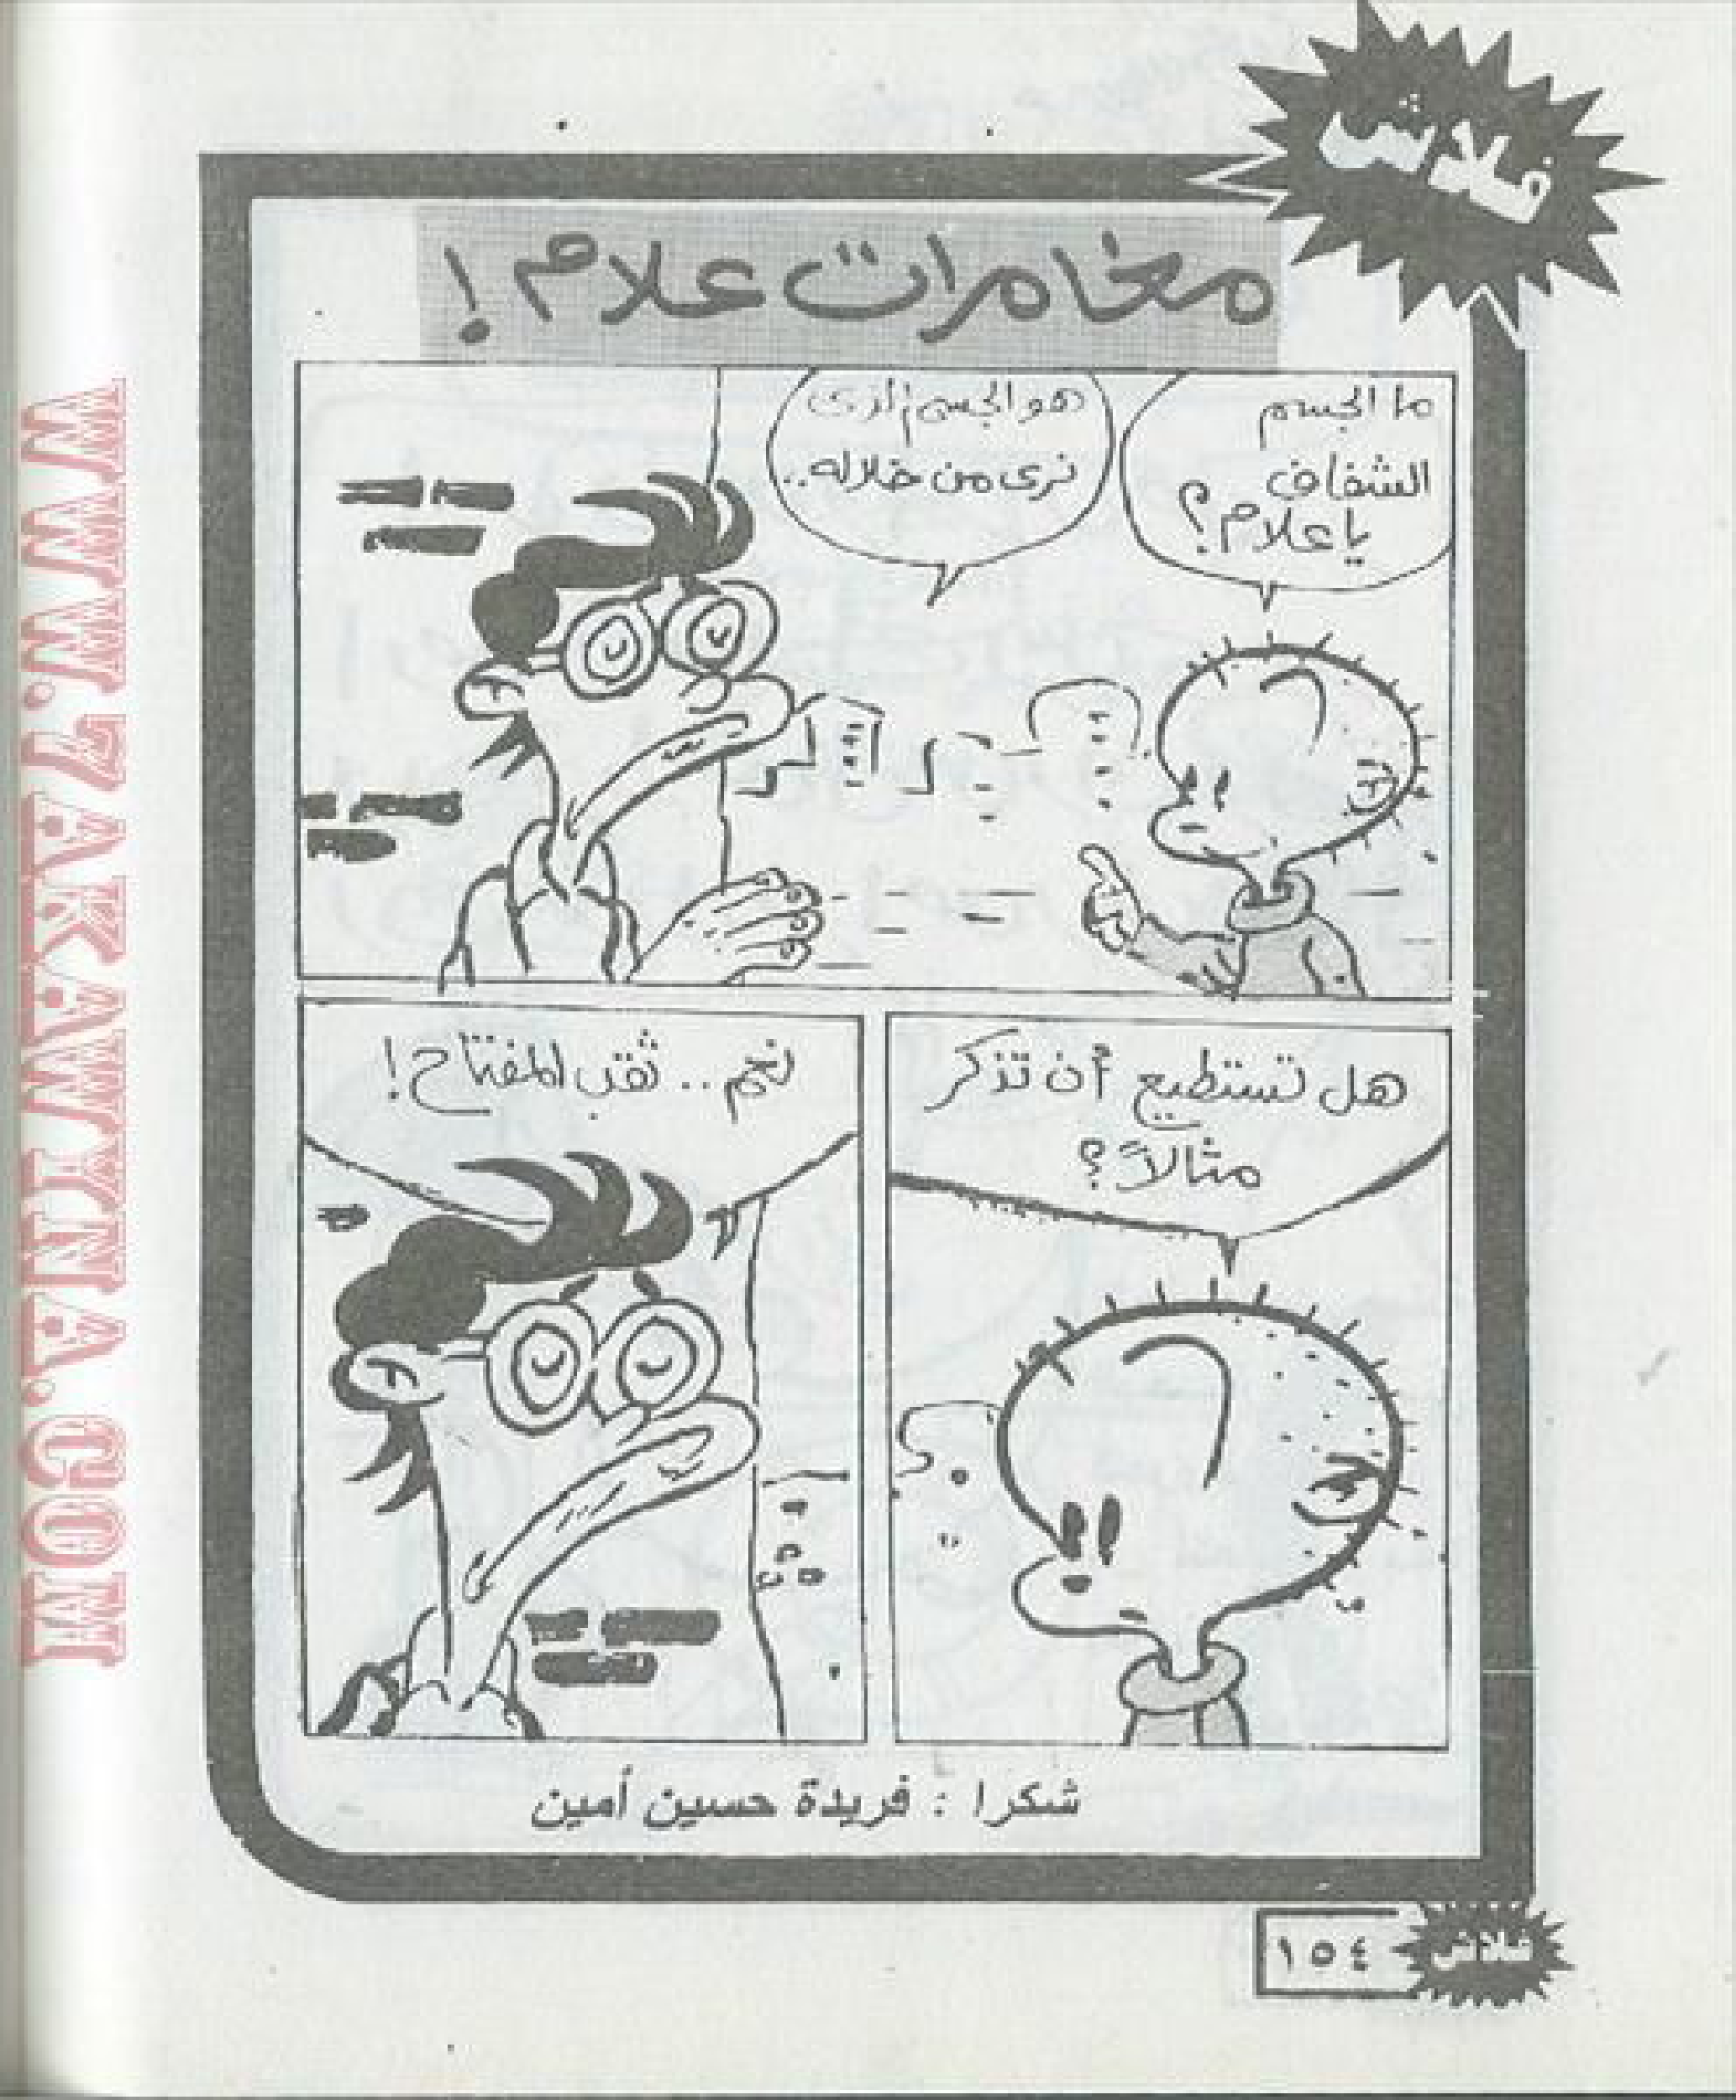 فلاش
مغامرات علام !
ما الجسم
الشفاف
يا علام ؟
هو الجسم الذى
نرى من خلاله ..
هل تستطيع أن تذكر
مثالاً ؟
نعم .. ثقب المفتاح !
شكرا : فريدة حسين أمين
فلاش
١٥٤
WWW.ZAKAWTNA.COM